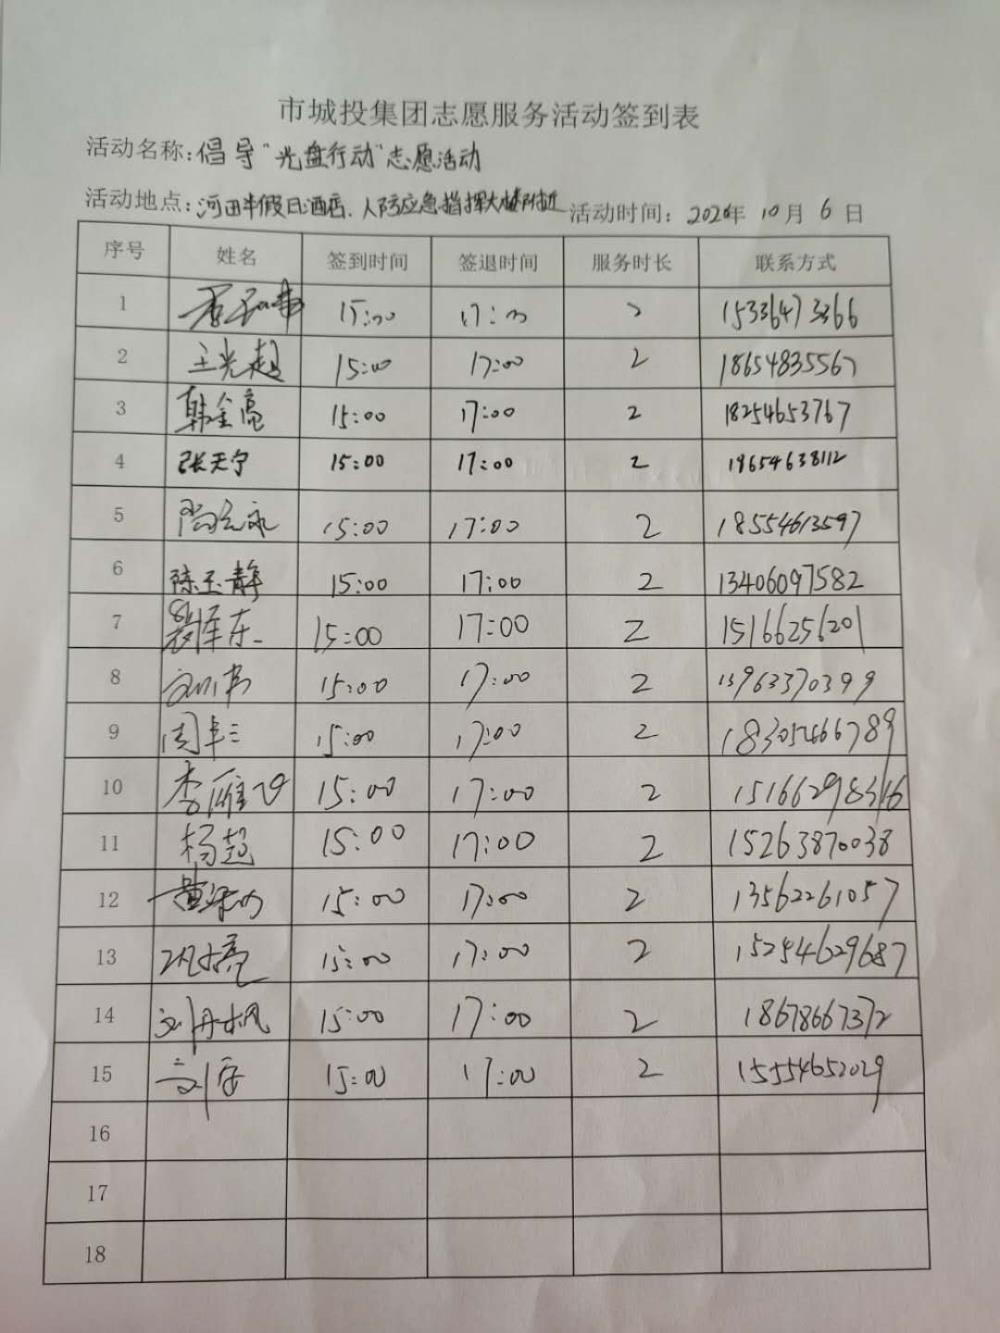 市城投集团志愿服务活动签到表
活动名称:倡导"光盘行动"志愿活动
活动地点:河田半假日酒店、人防应急指挥大楼附近 活动时间: 2020年 10月 6 日
序号 姓名 签到时间 签退时间 服务时长 联系方式
1 15:00 17:00 2 15336473366
2 王光超 15:00 17:00 2 18654835567
3 韩金亮 15:00 17:00 2 18254653767
4 张天宁 15:00 17:00 2 18654638112
5 尚云永 15:00 17:00 2 18554613597
6 陈玉静 15:00 17:00 2 13406097582
7 裴泽东 15:00 17:00 2 15166256201
8 15:00 17:00 2 13963370399
9 周丰三 15:00 17:00 2 18305466789
10 李雁 15:00 17:00 2 15166298316
11 杨超 15:00 17:00 2 15263870038
12 15:00 17:00 2 13562261057
13 巩亮 15:00 17:00 2 15254629687
14 刘丹枫 15:00 17:00 2 18678667372
15 15:00 17:00 2 15554652029
16
17
18